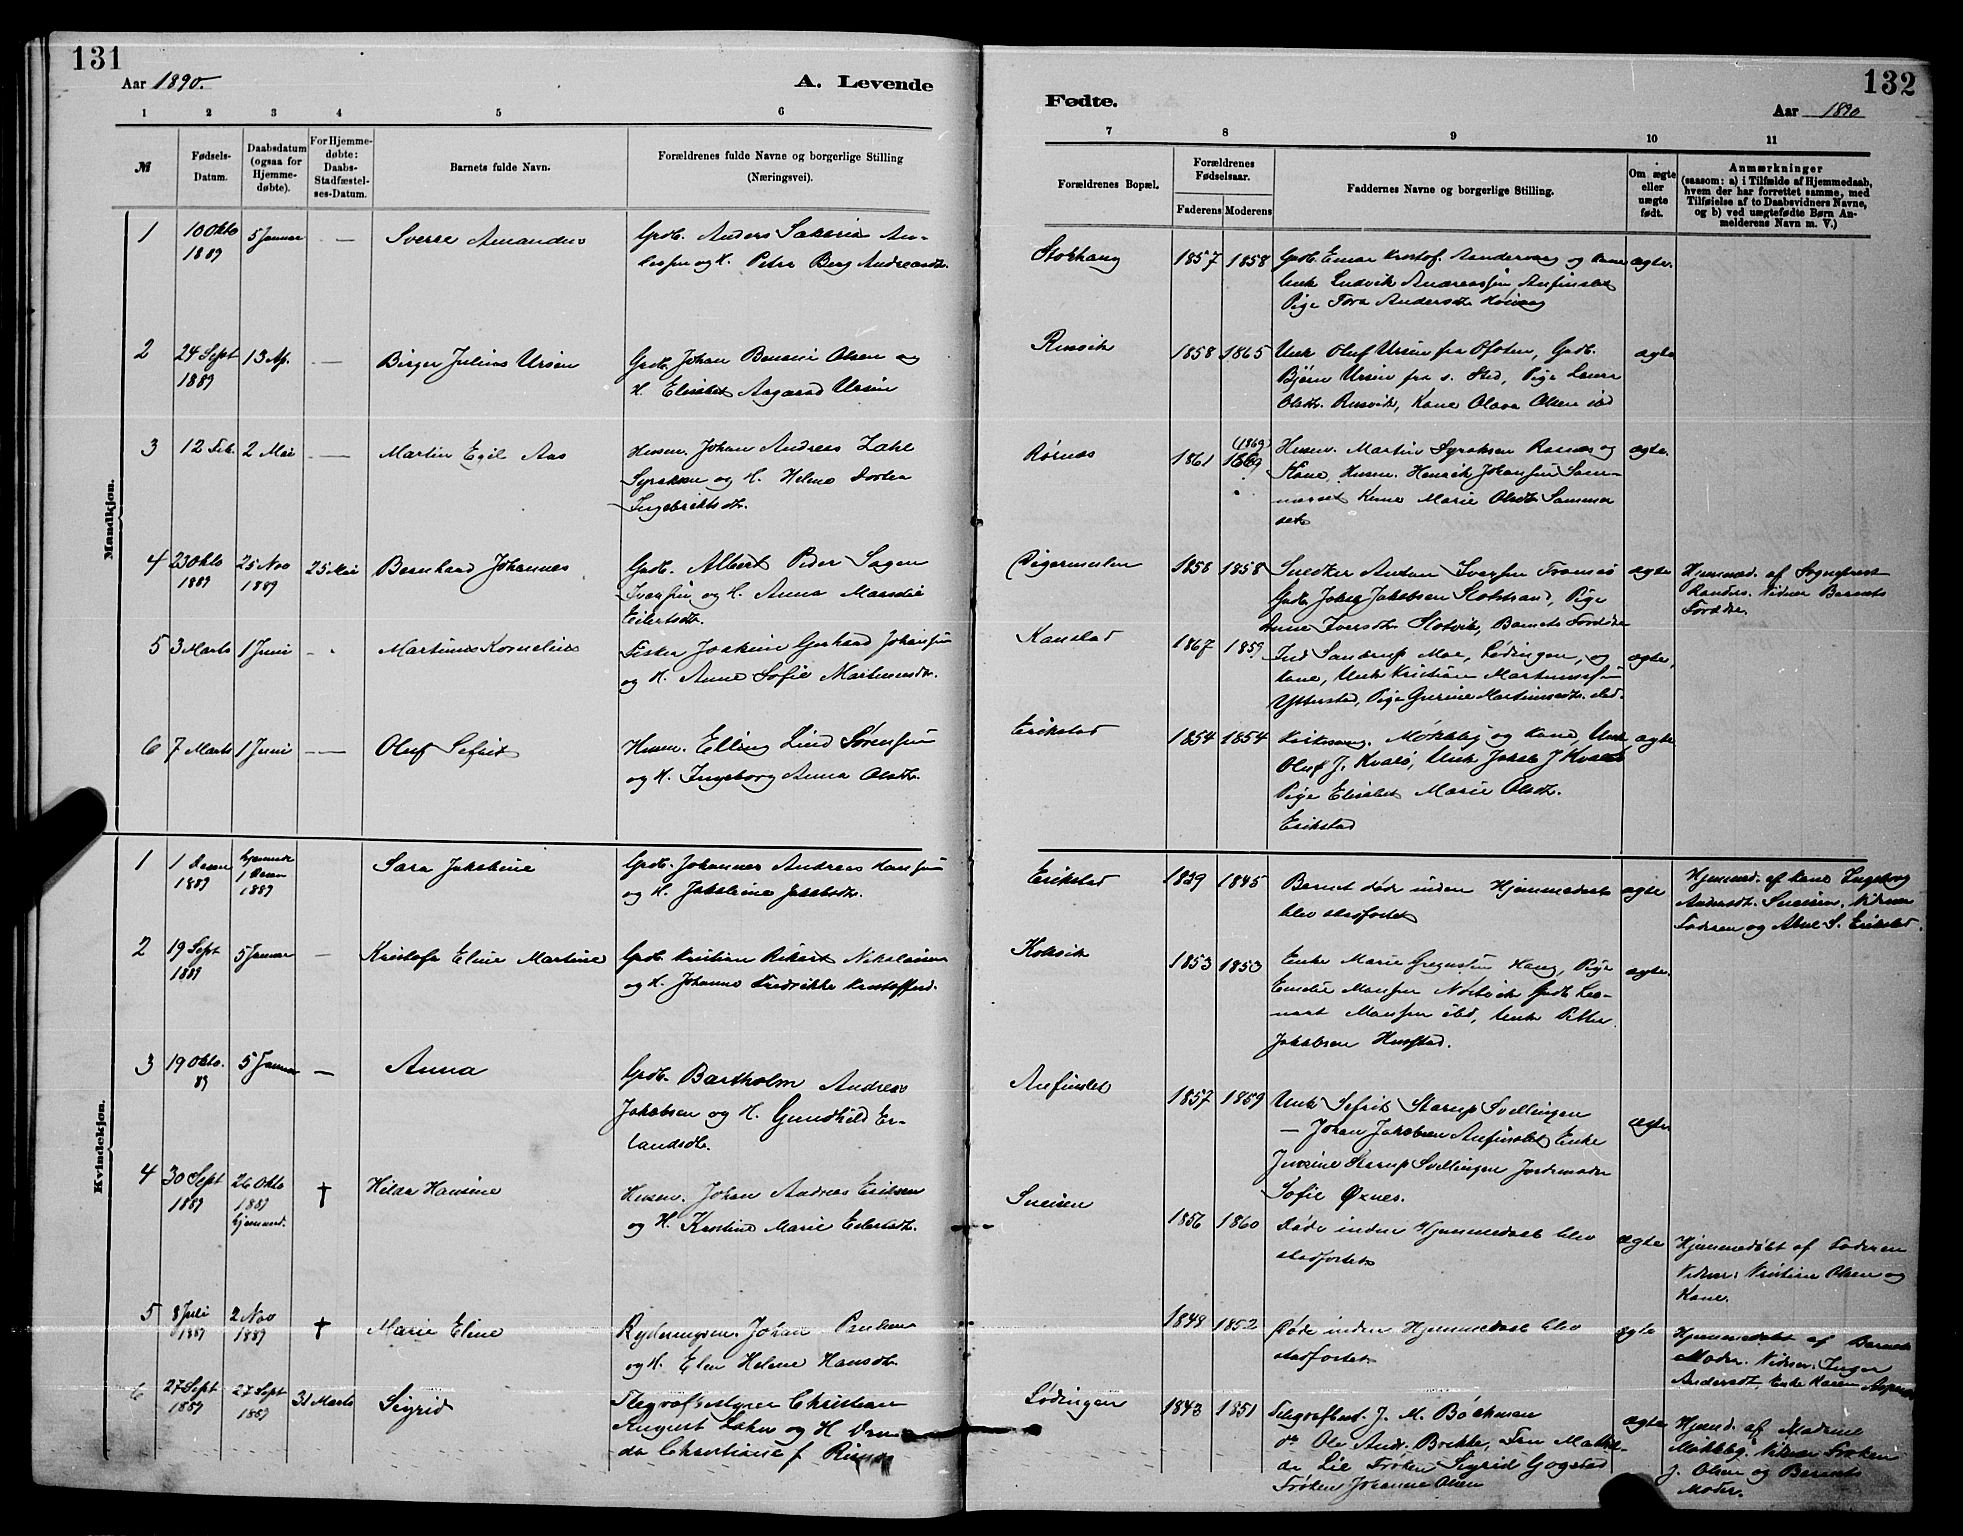 131
Aar 1890.
A. Levende
1 2 3 4 5 6
№
Fødsels-Datum.
Daabsdatum (ogsaa for Hjemmedøbte).
For Hjemmedøbte: Daabs-Stadfæstelses-Datum.
Barnets fulde Navn.
Forældrenes fulde Navne og borgerlige Stilling (Næringsvei).
Mandkjøn.
1 10 Okto 1889 5 Januar — Sverre Amandus
Grdb. Anders Sakarias An-
og H. Petra Berg Andreasdt.
2 24 Sept 1889 13 Ap. — Birger Julius Ursin
Grdb. Johan Benoni Olsen og
H. Elisabet Aagaard Ursin
3 12 Feb. 2 Mai — Martin Egil Aas
Husm. Johan Andreas Zahl
Syraksen og H. Helene Dortea
Ingebriktsdt.
4 23 Okto 1889 25 Nov 1889 25 Mai Bernhard Johannes
Grdb. Albert Peder Sagen
Iversen og H. Anna
Eilertsdt.
5 3 Marts 1 Juni Martinus Kornelius
Fisker Joakim Gerhard Johansen
og H. Anne Sofie Martinusdt.
6 7 Marts 1 Juni — Oluf Sefrit
Husm. Elling Lind Sørensen
og H. Ingeborg Anna Olsdt.
Kvindekjøn.
1 1 Decem 1889 hjemmed. 1 Decem 1889 Sara Jakobine
Grdb. Johannes Andreas Hansen
og H. Jakobine Jakobsdt.
2 19 Sept 1889 5 Januar — Kristofa Eline Martine
Grdb. Kristian Rikart Nikolaisen
og H. Johanna Fredrikke Kristoffersd.
3 19 Okto. 89 5 Januar — Anna
Grdb. Bartholm Andreas
Jakobsen og H. Gundhild Er-
landsdt.
4 30 Sept 1889 26 Okto 1889 hjemmed. † Hilda Hansine
Husm. Johan Andreas Eriksen
og H. Kristine Marie Eilertsdt.
5 8 Juli 1889 2 Nov 1889 † Marie Eline
Johan Paulsen
og H. Elen Helene Hansdt.
6 27 Sept 1889 27 Sept 1889 31 Marts Sigrid
Tlegrafbestyrer Christian
August Lahn og H.
Christiane f.
132
Fødte.
Aar 1890
7 8 9 10 11
Forældrenes Bopæl.
Forældrenes Fødselsaar.
Faderens Moderens
Faddernes Navne og borgerlige Stilling.
Om ægte eller uægte født.
Anmærkninger
(saasom: a) i Tilfælde af Hjemmedaab, hvem der har forrettet samme, med Tilføielse af to Daabsvidners Navne, og b) ved uægtefødte Børn Anmelderens Navn m. V.)
Stokhaug 1857 1858 Grdb. Einar Kristof. Sandervaag og Kone ægte.
Unk Ludvik Andreassen, Anfinslet
Pige Tora Andersdt.
Rinvik 1858 1865 Unk Oluf Ursin fra Ofoten, Grdb. ægte
Bjørn Ursin fra s. Sted, Pige Laura
Olsdt. Rinvik, Kone Olava Olsen ibd
Rørnes 1861 (1869) 1869 Husm. Martin Syraksen og ægte.
Kone, Husm. Henrik Johansen Sommerset
Kone Marie Olsdt. Sommer
set
Digermulen 1858 1858 Snedker Anton Iversen Tromsø ægte
Grdb. Johan Jakobsen Stokstrand, Pige
Anne Iversdt. Slotvik, Barnets Forældre
Hjemmed. af Sogneprest
Landos. Vidner Barnets
Forældre.
Kanstad 1867 1859 Ind. Santrup Moe, Lødingen, og ægte,
Kone, Unk Kristian Martinussen
Ytterstad, Pige Gurine Martinusdt. ibd.
Erikstad 1854 1854 Kirkesang. Møkkelbg og Kone, Unk ægte
Oluf J. Kvalø, Unk Jakob J Kvalø
Pige Elisabet Marie Olsdt.
Erikstad
Erikstad 1839 1845 Barnet døde inden Hjemmedaab ægte
blev stadfæstet
Hjemmed. af Kone Ingeborg
Andersdt. Sneisen, Vidner
Faderen og Abel S. Erikstad.
Kokvik 1853 1853 Enke Marie Haug, Pige ægte.
Emelie Monsen Nolvik Grdb Leo-
nart Monsen ibd, Unk Petter
Jakobsen Husstad.
Anfinslet 1857 1859 Unk Sefrit Starup Svellingen ægte
— Johan Jakobsen Anfinslet Enke
Jensine Starup Svellingen Jordemoder
Sofie Øxnes.
Sneisen 1856 1860 Døde inden Hjemmedaab blev ægte
stadfæstet
Hjemmedøbt af Faderen
Vidner: Kristian Olsen og
Kone.
1849 1852 Døde inden Hjemmedaab blev ægte
stadfæstet
Hjemmedøbt af Barnets
Moder. Vidner: Inger
Andersdt, Enke Karen
Lødingen 1843 1851 Telegrafbest. J. M. Bøckman ægte
do Ole Andr. Brekke, Fru Mathil-
de Lie Frøken Sigrid Gogstad
Frøken Johanna Olsen
Hjemd. af Madme
Møkkelbg. Vidner Frøken
J. Olsen og Barnets
Moder.